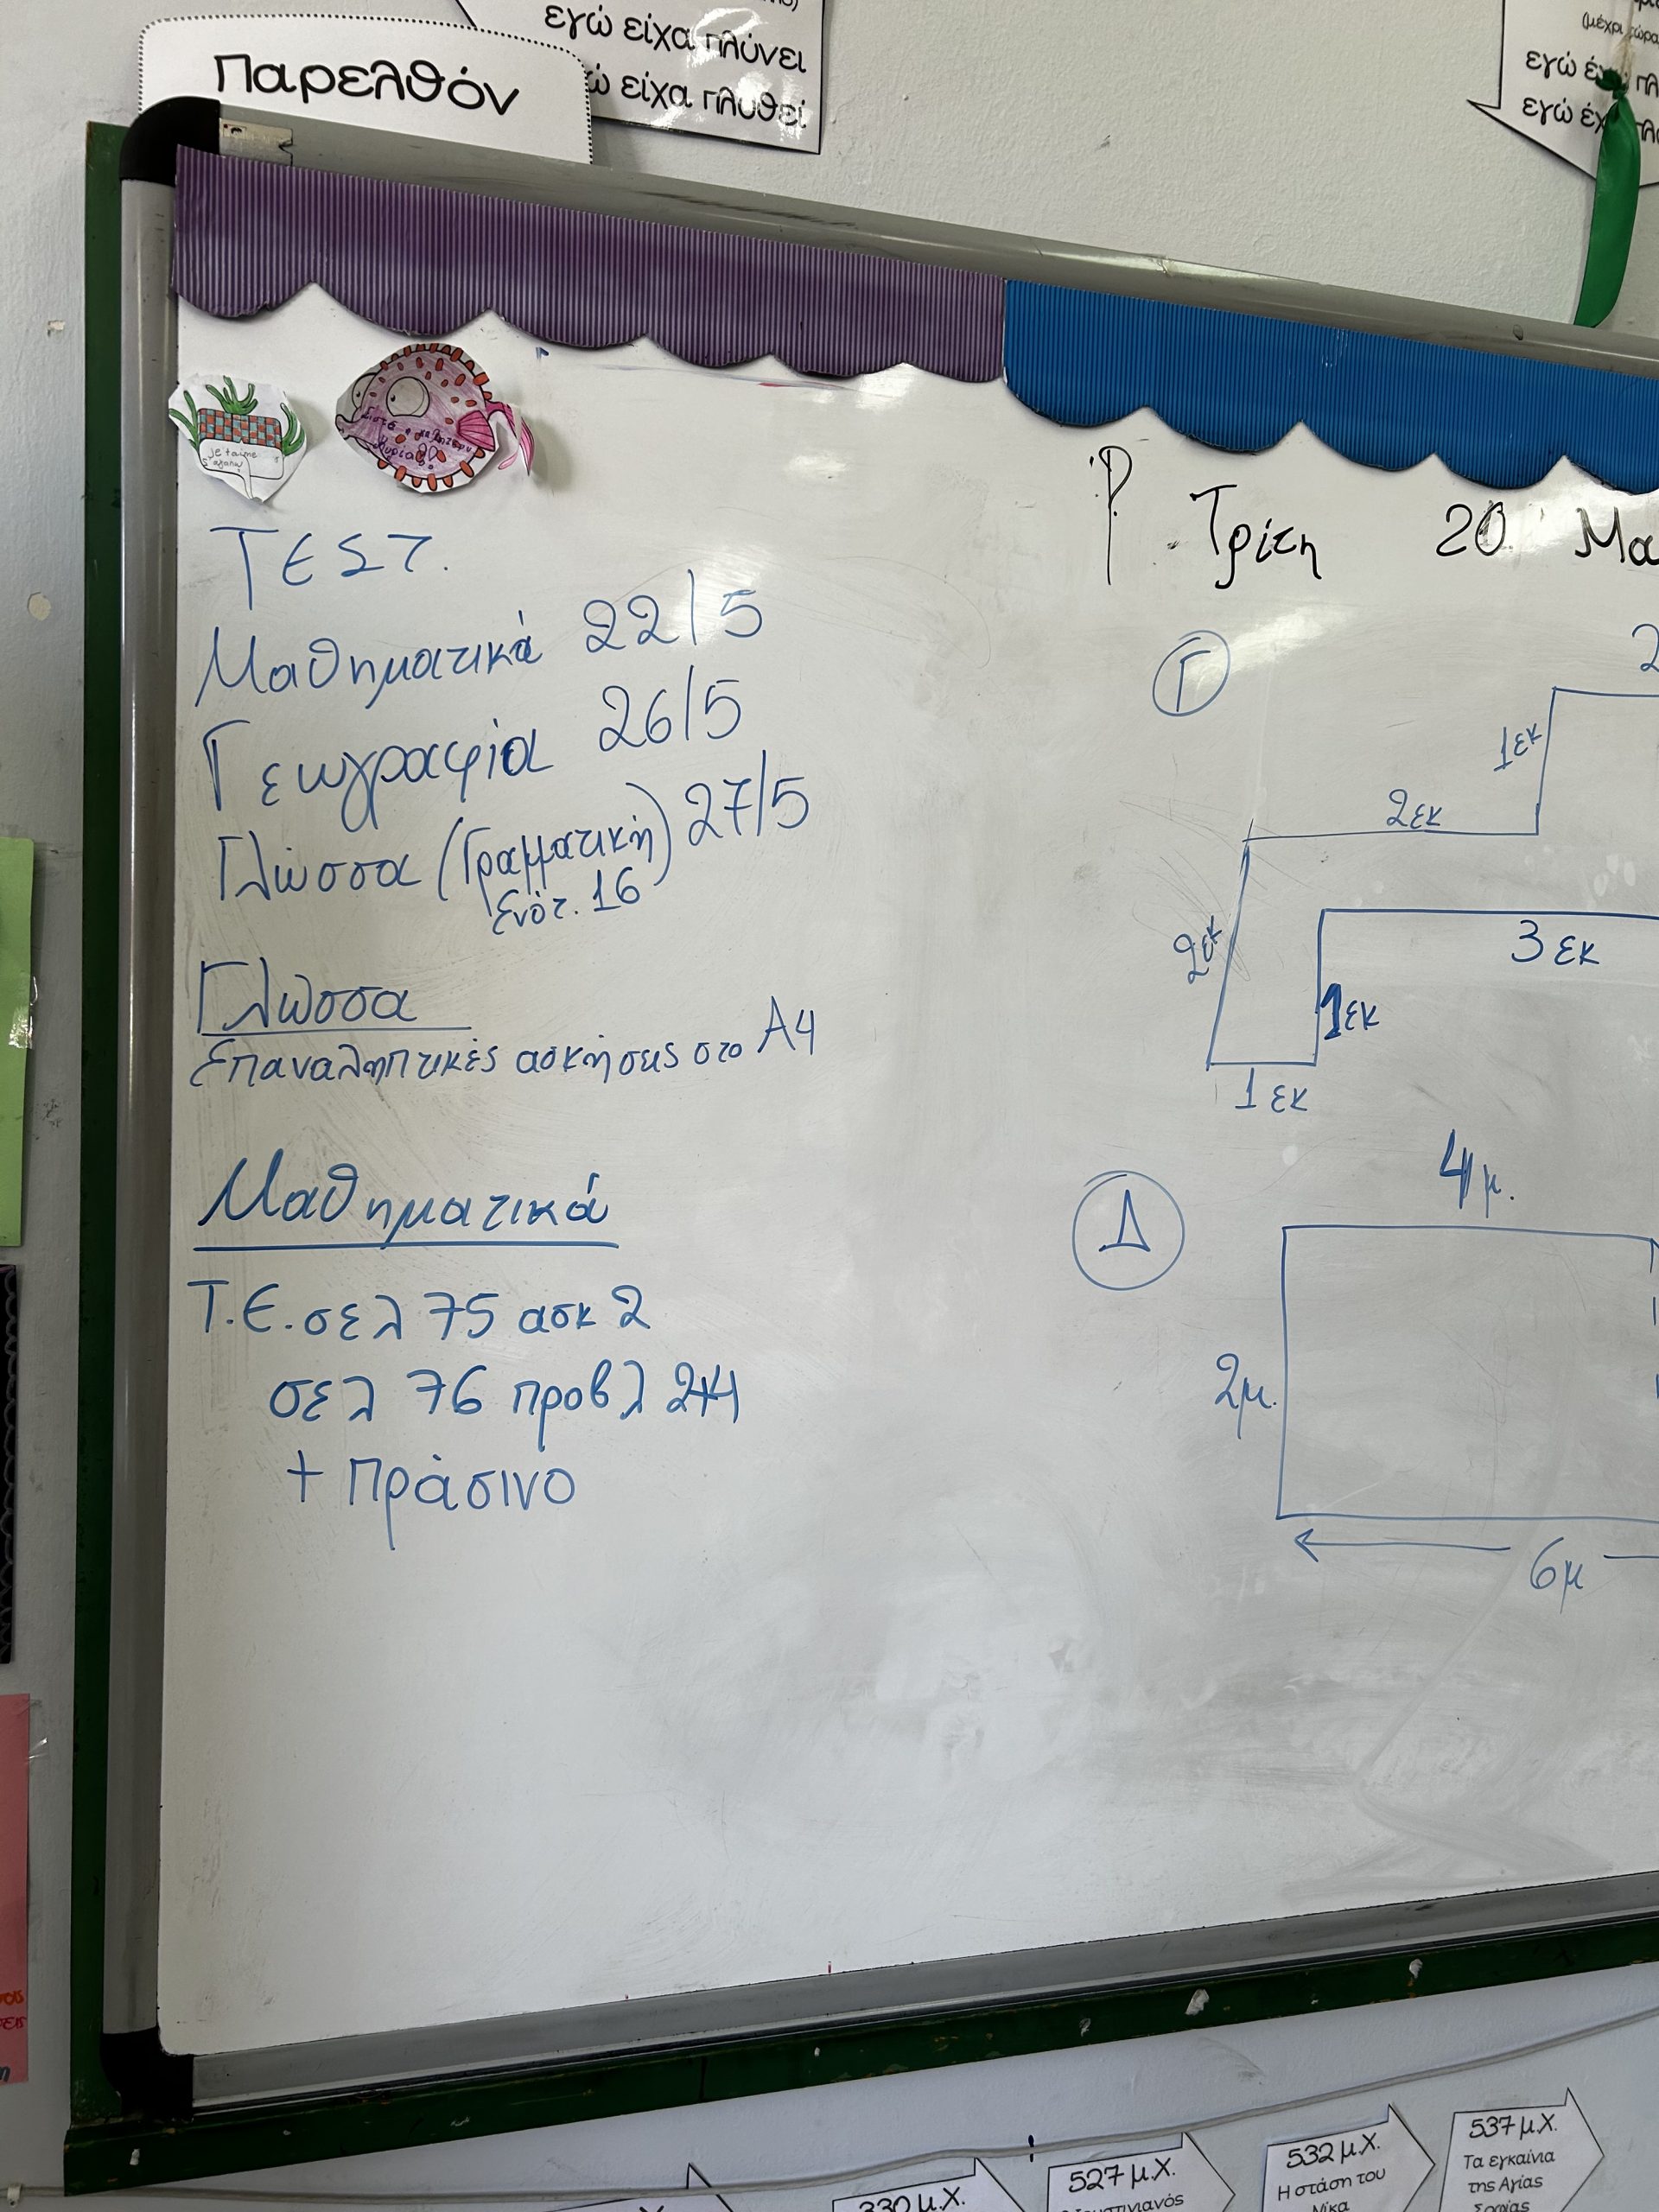 εγώ είχα πλύνει
εγώ είχα πλυθεί
Παρελθόν
(μέχρι τώρα
εγώ έχ
εγώ έχ
je t'aime
s'αγαπώ
Κυρία
ΤΕSΤ.
Μαθηματικά 22/5
Γεωγραφία 26/5
Γλώσσα (Γραμματική) 27/5
Ενότ. 16
Γλώσσα
Επαναληπτικές ασκήσεις στο Α4
Μαθηματικά
Τ.Ε. σελ 75 ασκ 2
σελ 76 προβλ 2+4
+ πράσινο
Τρίτη 20 Μα
Γ
2
1εκ
2εκ
2εκ
3 εκ
1εκ
1 εκ
Δ
4μ.
2μ.
6μ
330 μ.Χ.
527 μ.Χ.
532 μ.Χ.
Η στάση του
Νίκα
537 μ.Χ.
Τα εγκαίνια
της Αγίας
Σοφίας